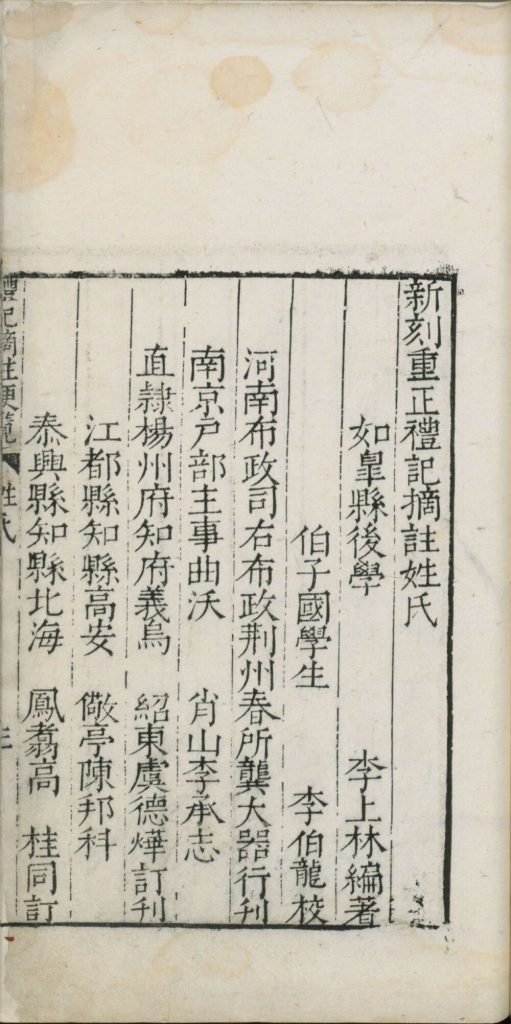 新刻重正禮記摘註姓氏
如臯縣後學　李上林編著
伯子國學生　李伯龍校
河南布政司右布政荆州春所龔大器行刋
南京戸部主事曲沃　肖山李承志
直隷楊州府知府義烏　紹東虞德燁訂刋
江都縣知縣高安　儆亭陳邦科
泰興縣知縣北海　鳳翥高　桂同訂
禮記摘註便覽　姓氏　三